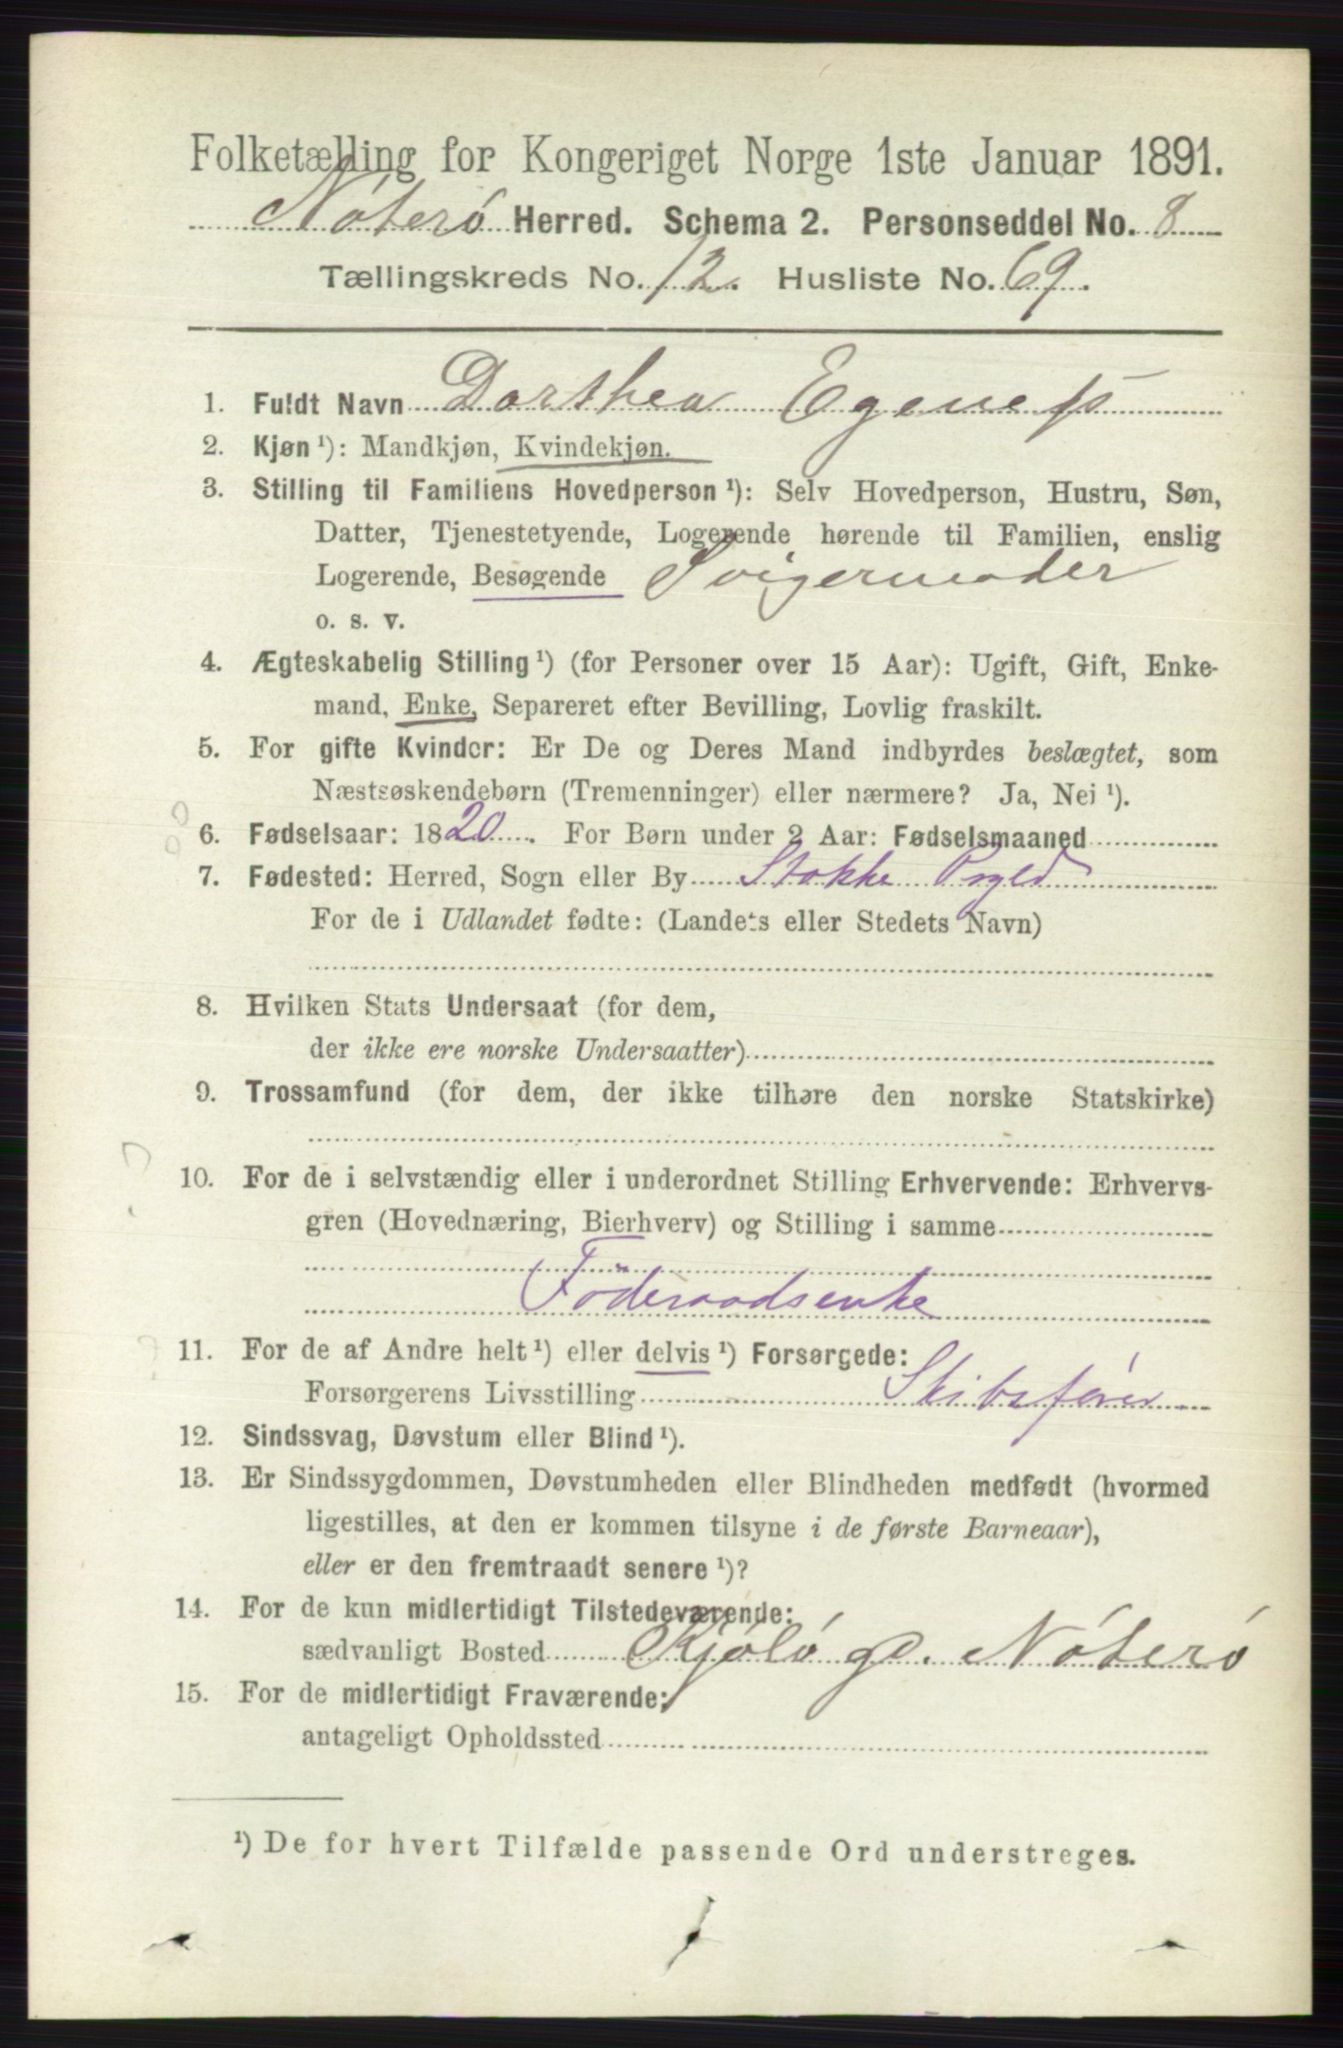 Folketælling for Kongeriget Norge 1ste Januar 1891.
Nøterø Herred. Schema 2. Personseddel No. 8
Tællingskreds No. 12. Husliste No. 69.
1. Fuldt Navn Dorthea Egeness
2. Kjøn ¹): Mandkjøn, Kvindekjøn.
3. Stilling til Familiens Hovedperson ¹): Selv Hovedperson, Hustru, Søn,
Datter, Tjenestetyende, Logerende hørende til Familien, enslig
Logerende, Besøgende Svigermoder
o. s. v.
4. Ægteskabelig Stilling ¹) (for Personer over 15 Aar): Ugift, Gift, Enke-
mand, Enke, Separeret efter Bevilling, Lovlig fraskilt.
5. For gifte Kvinder: Er De og Deres Mand indbyrdes beslægtet, som
Næstsøskendebørn (Tremenninger) eller nærmere? Ja, Nei ¹).
6. Fødselsaar: 1820. For Børn under 2 Aar: Fødselsmaaned
7. Fødested: Herred, Sogn eller By Stokke Prgld
For de i Udlandet fødte: (Landets eller Stedets Navn)
8. Hvilken Stats Undersaat (for dem,
der ikke ere norske Undersaatter)
9. Trossamfund (for dem, der ikke tilhøre den norske Statskirke)
10. For de i selvstændig eller i underordnet Stilling Erhvervende: Erhvervs-
gren (Hovednæring, Bierhverv) og Stilling i samme
Föderaadsenke
11. For de af Andre helt ¹) eller delvis ¹) Forsørgede:
Forsørgerens Livsstilling Skibsfører
12. Sindssvag, Døvstum eller Blind ¹).
13. Er Sindssygdommen, Døvstumheden eller Blindheden medfødt (hvormed
ligestilles, at den er kommen tilsyne i de første Barneaar),
eller er den fremtraadt senere ¹)?
14. For de kun midlertidigt Tilstedeværende:
sædvanligt Bosted Kjøló gd. Nóteró
15. For de midlertidigt Fraværende:
antageligt Opholdssted
¹) De for hvert Tilfælde passende Ord understreges.